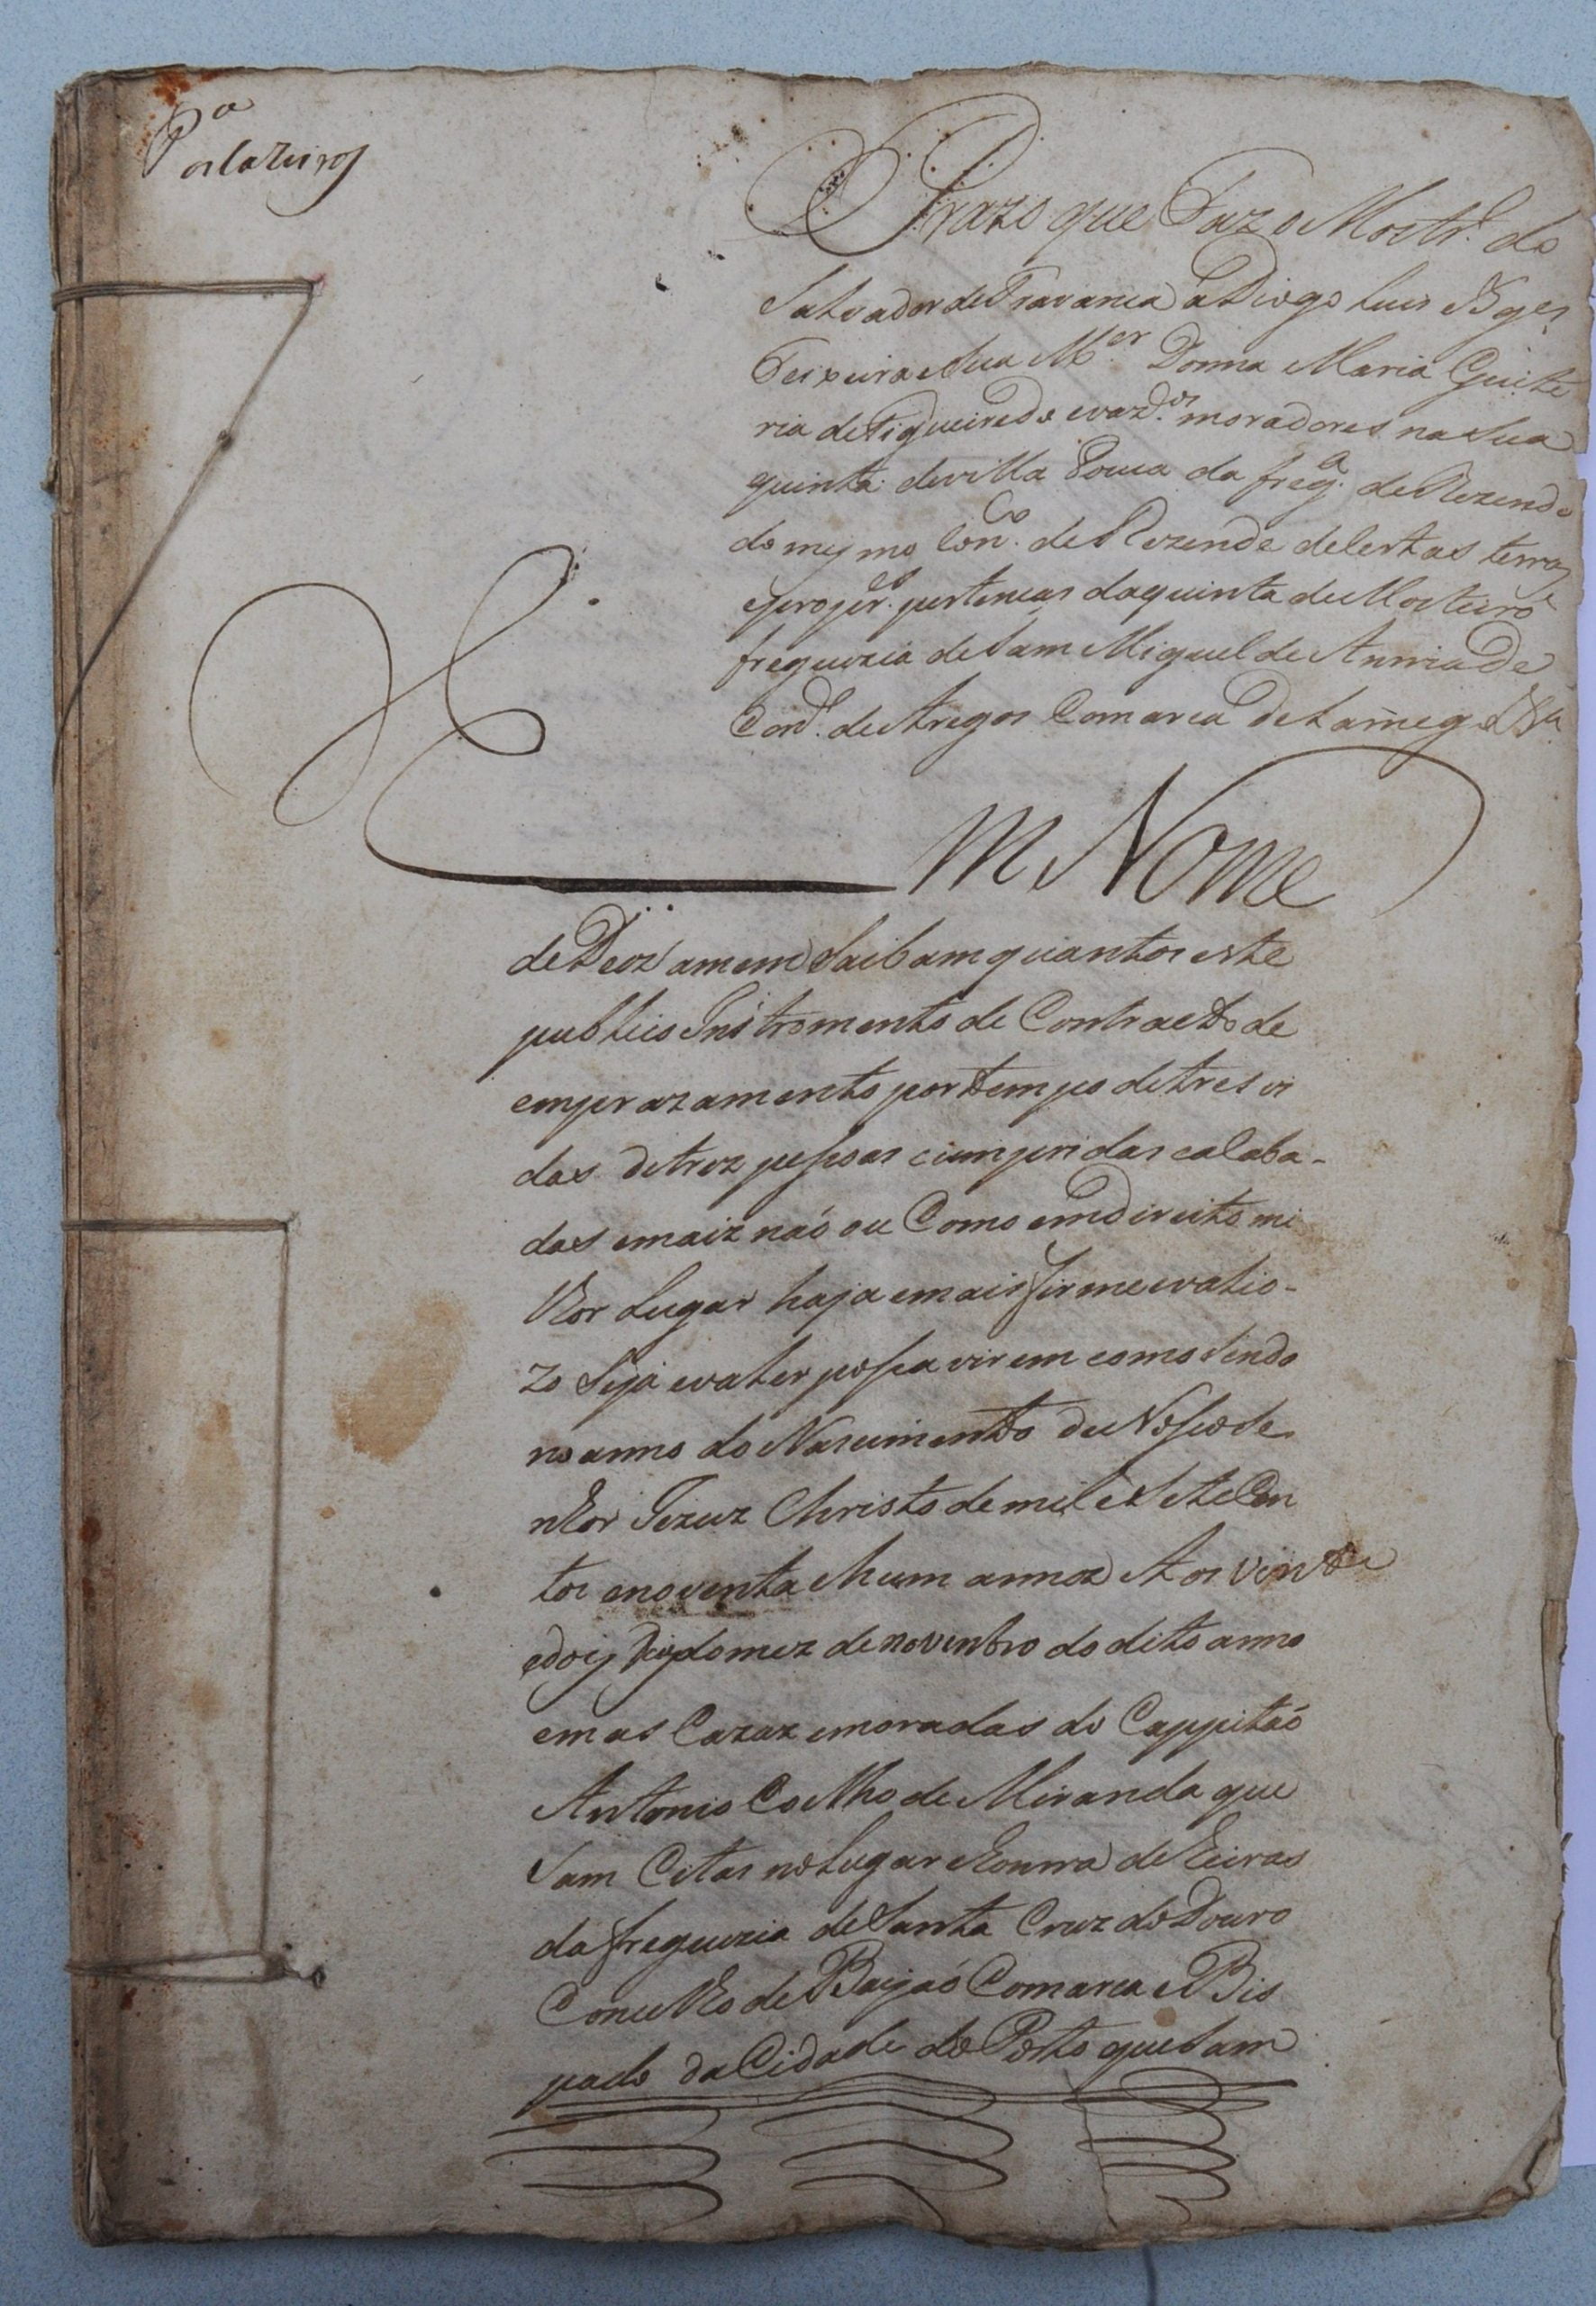 Pª
Prazo que Faz o Mostr.º do
Salvador de Travanca a Diogo Luis Bg.es
Teixeira e Sua M.er Donna Maria Quite
ria de Figueiredo e caz.os moradores na Sua
quinta de villa Pouca da freg.ª de Rezende
do mesmo Con.co de Rezende de Certas terras
e propr.es pertenças da quinta de Mosteiro
freguezia de Sam Miguel de Anrriade
Con.º de Aregos Comarca de Lamego
Em Nome
de Deoz amem Saibam quantos este
publico Instromento de Contracto de
emprazamento por tempo de tres vi
das de trez pessoas cumpridas e acaba-
das e maiz não ou Como em direito mi
lhor Lugar haja e mais firme e valio-
zo Seja e valer possa virem como Sendo
no anno do Nascimento de Nosso Se
nhor Jezuz Christo de mil e Sete Cen
tos e noventa e hum annoz Aos vinte
e dois dias do mez de novenbro do dito anno
em as Cazaz e moradas do Cappitão
Antonio Coelho de Miranda que
Sam Citas no Lugar e honrra de Eiras
da freguezia de Santa Cruz do Douro
Concelho de Bayaõ Comarca e Bis
pado da Cidade do Porto que Sam